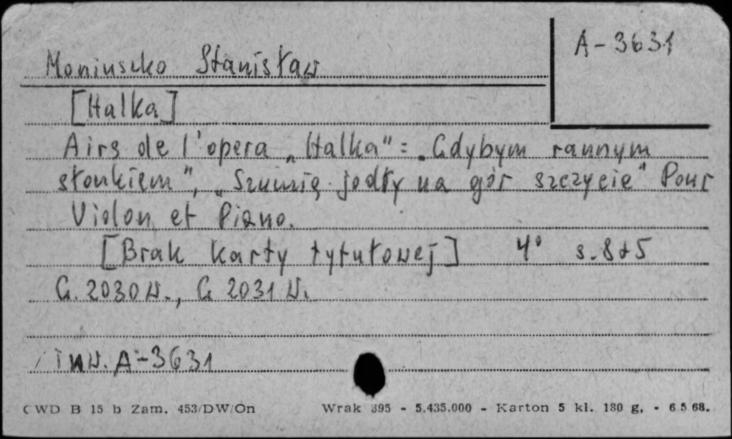 A-3631
Moniuszko Stanisław
[Halka]
Airs de l'opera „Halka" = „Gdybym rannym
słonkiem", „Szumią jodły na gór szczycie" Pour
Violon et Piano.
[Brak karty tytułowej] 4° s. 8+5
G. 2030 W., G 2031 W.
inw. A-3631
CWD B 15 b Zam. 453/DW/On Wrak 395 - 5.435.000 - Karton 5 kl. 180 g. - 6.5.68.